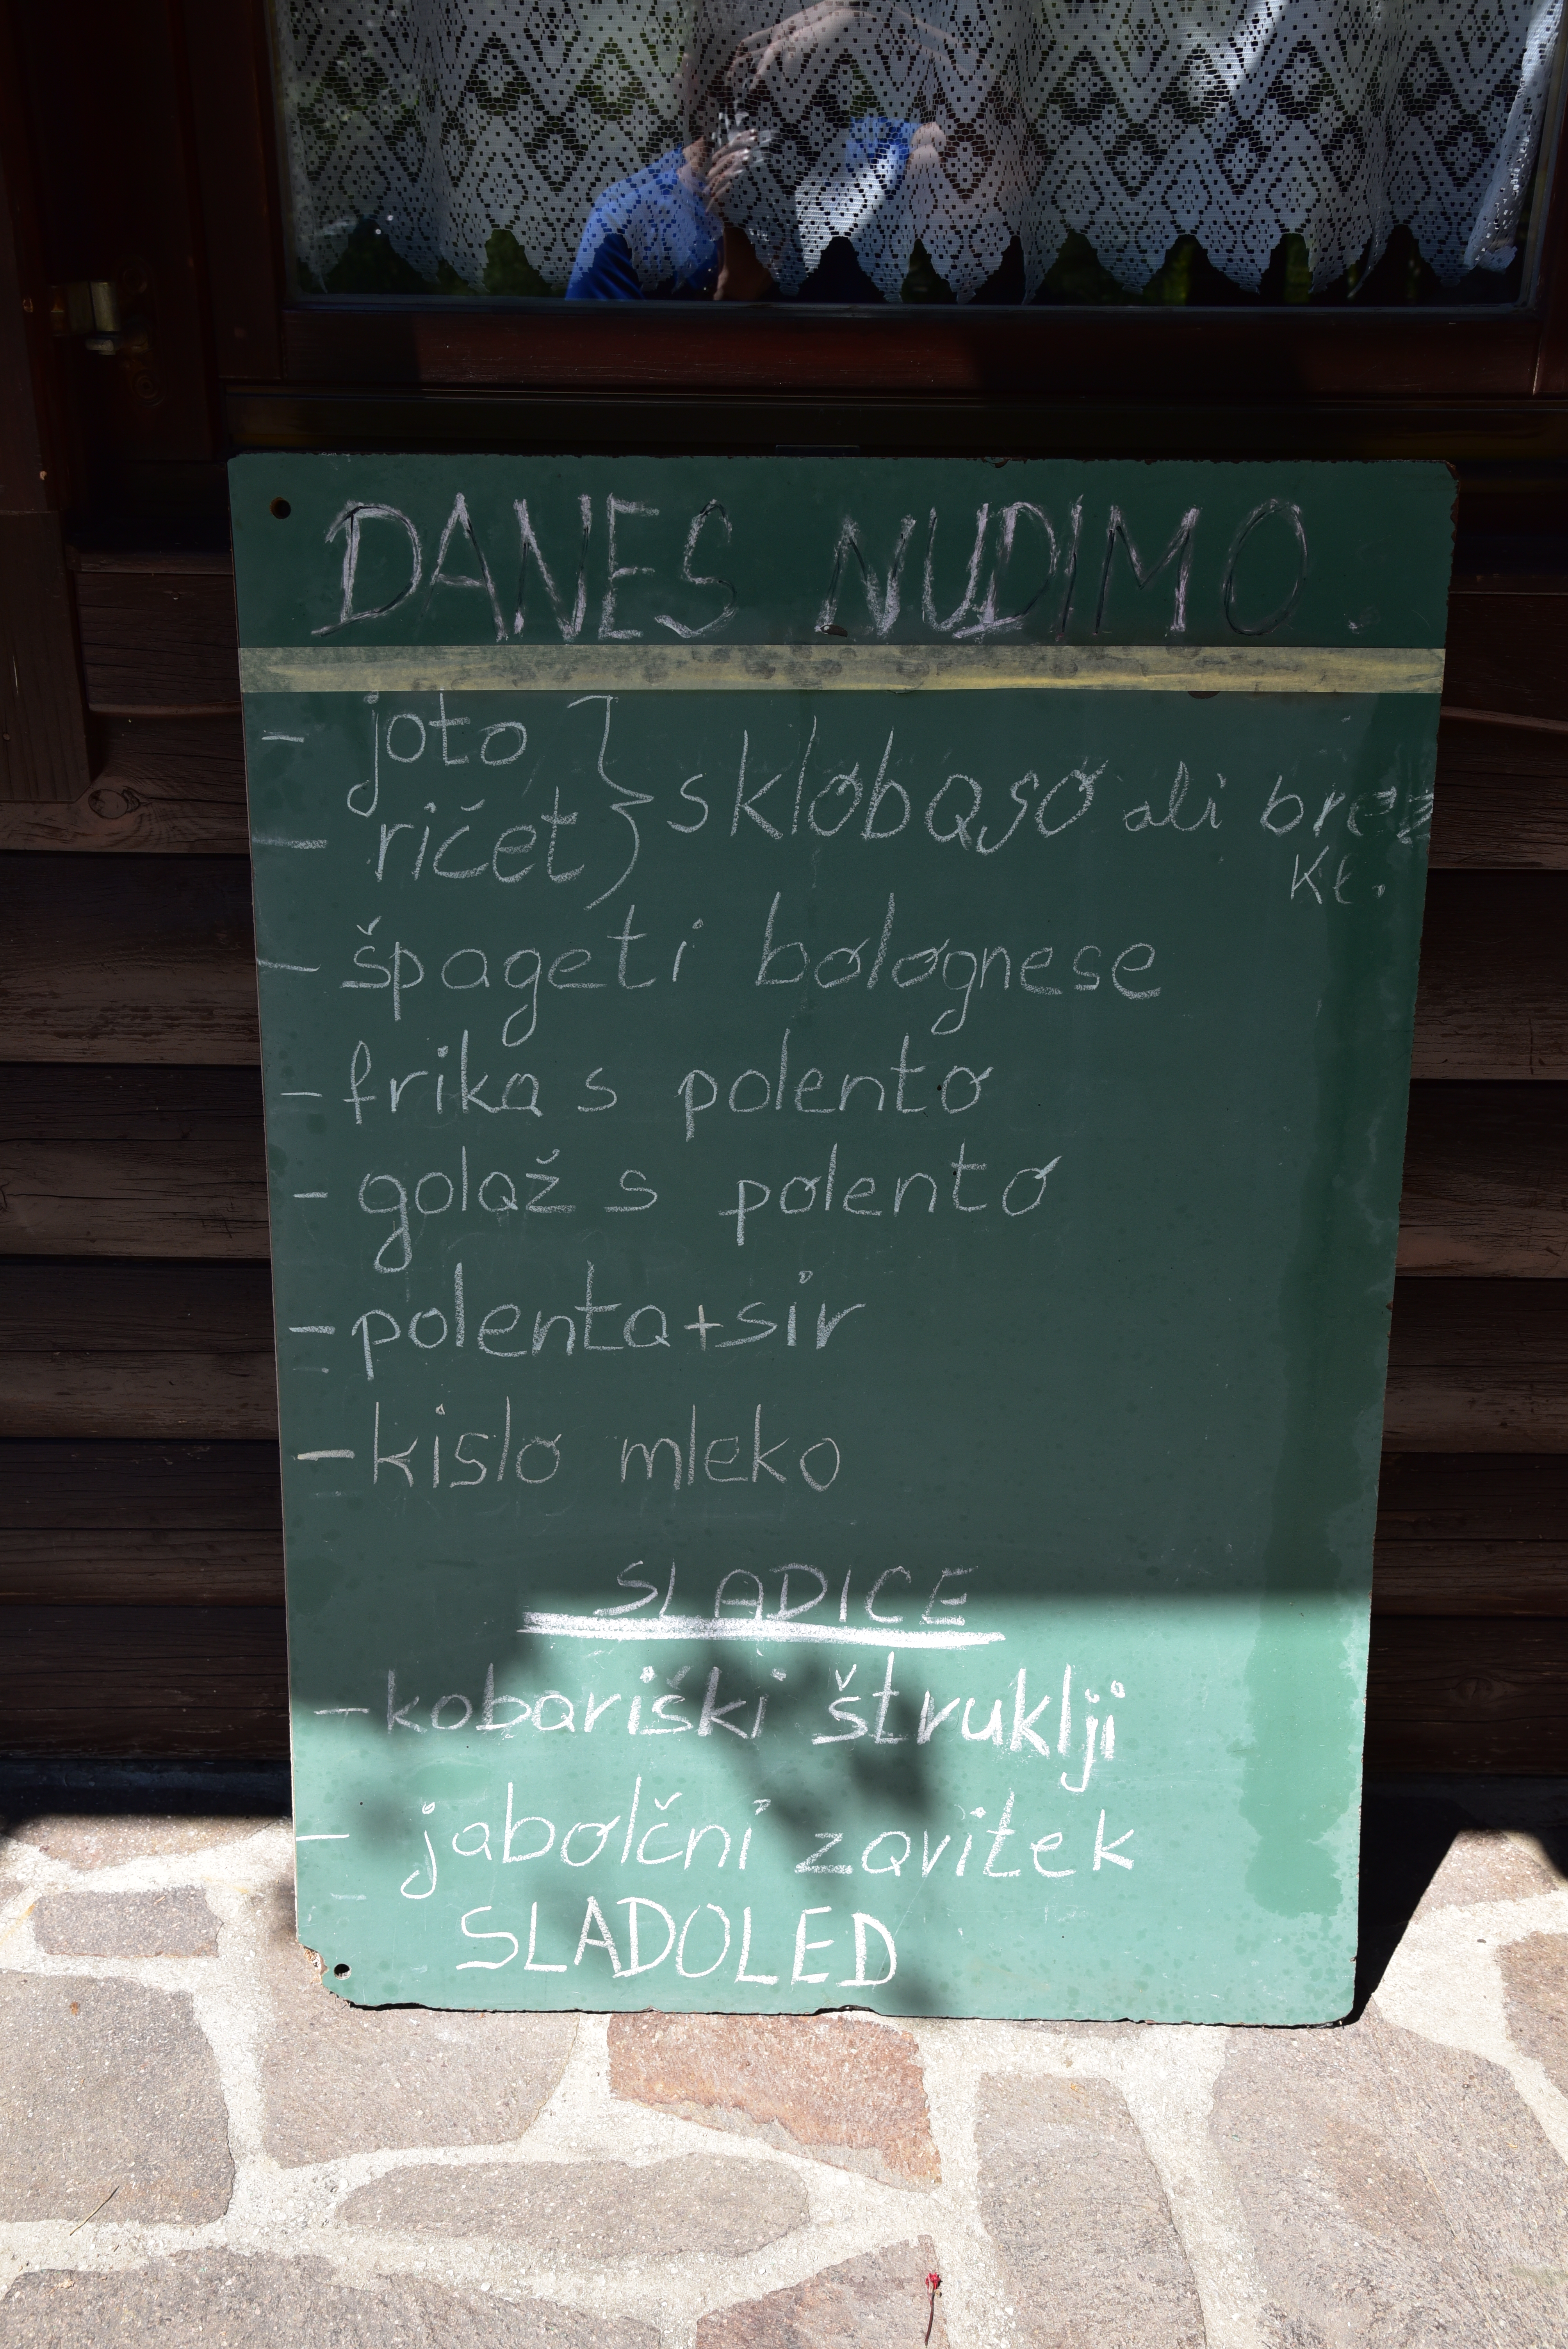 DANES NUDIMO
- joto } s klobaso ali brez
- ričet } kl.
- špageti bolognese
- frika s polento
- golaž s polento
- polenta+sir
- kislo mleko
SLADICE
- kobariški štruklji
- jabolčni zavitek
SLADOLED